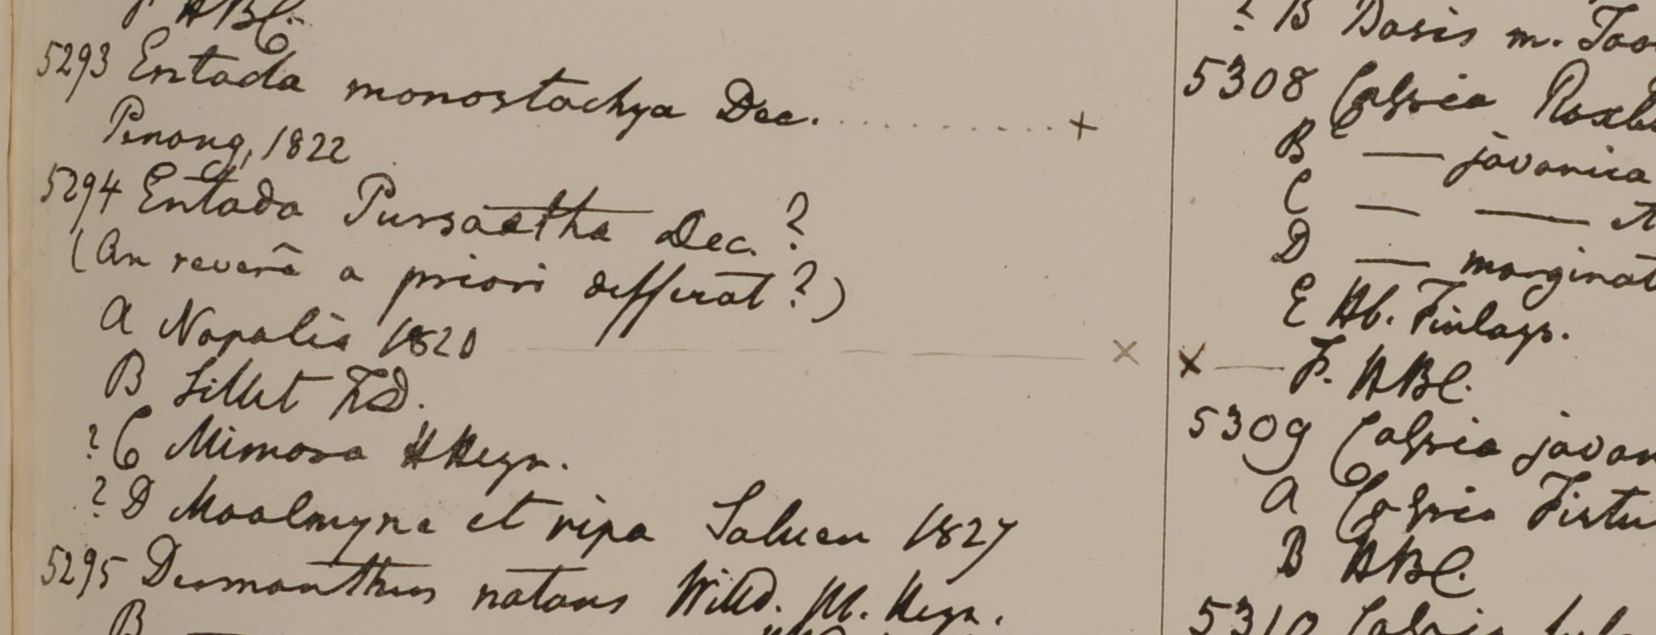 F. HBC.
5293 Entada monostachya Dec. .......... +
Penang, 1822
5294 Entada Pursaetha Dec. ?
(An reverâ a priori differat?)
A Napalia 1820 — — — ×
B Sillet F.D.
? C Mimosa HHeyn.
? D Moalmyne et ripa Saluen 1827
5295 Desmanthus natans Willd. M. Heyn.
B —
? B Dasis m.
5308 Cassia Roxb
B — javanica
C — —
D — marginat
E Hb. Finlays.
× — F. HBC.
5309 Cassia javan
A Cassia Fistu
B HBC.
5310 Cassia